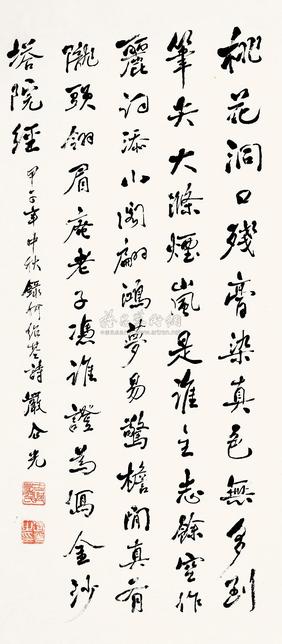 桃花洞口殘膏染真色無多到
筆尖大滌煙嵐是誰主志餘空作
麗詞添小閣翩鴻夢易驚檐間真有
隴頭翎眉庵老子憑誰證為寫金沙
塔院經
甲子年中秋錄何紹基詩嚴企光